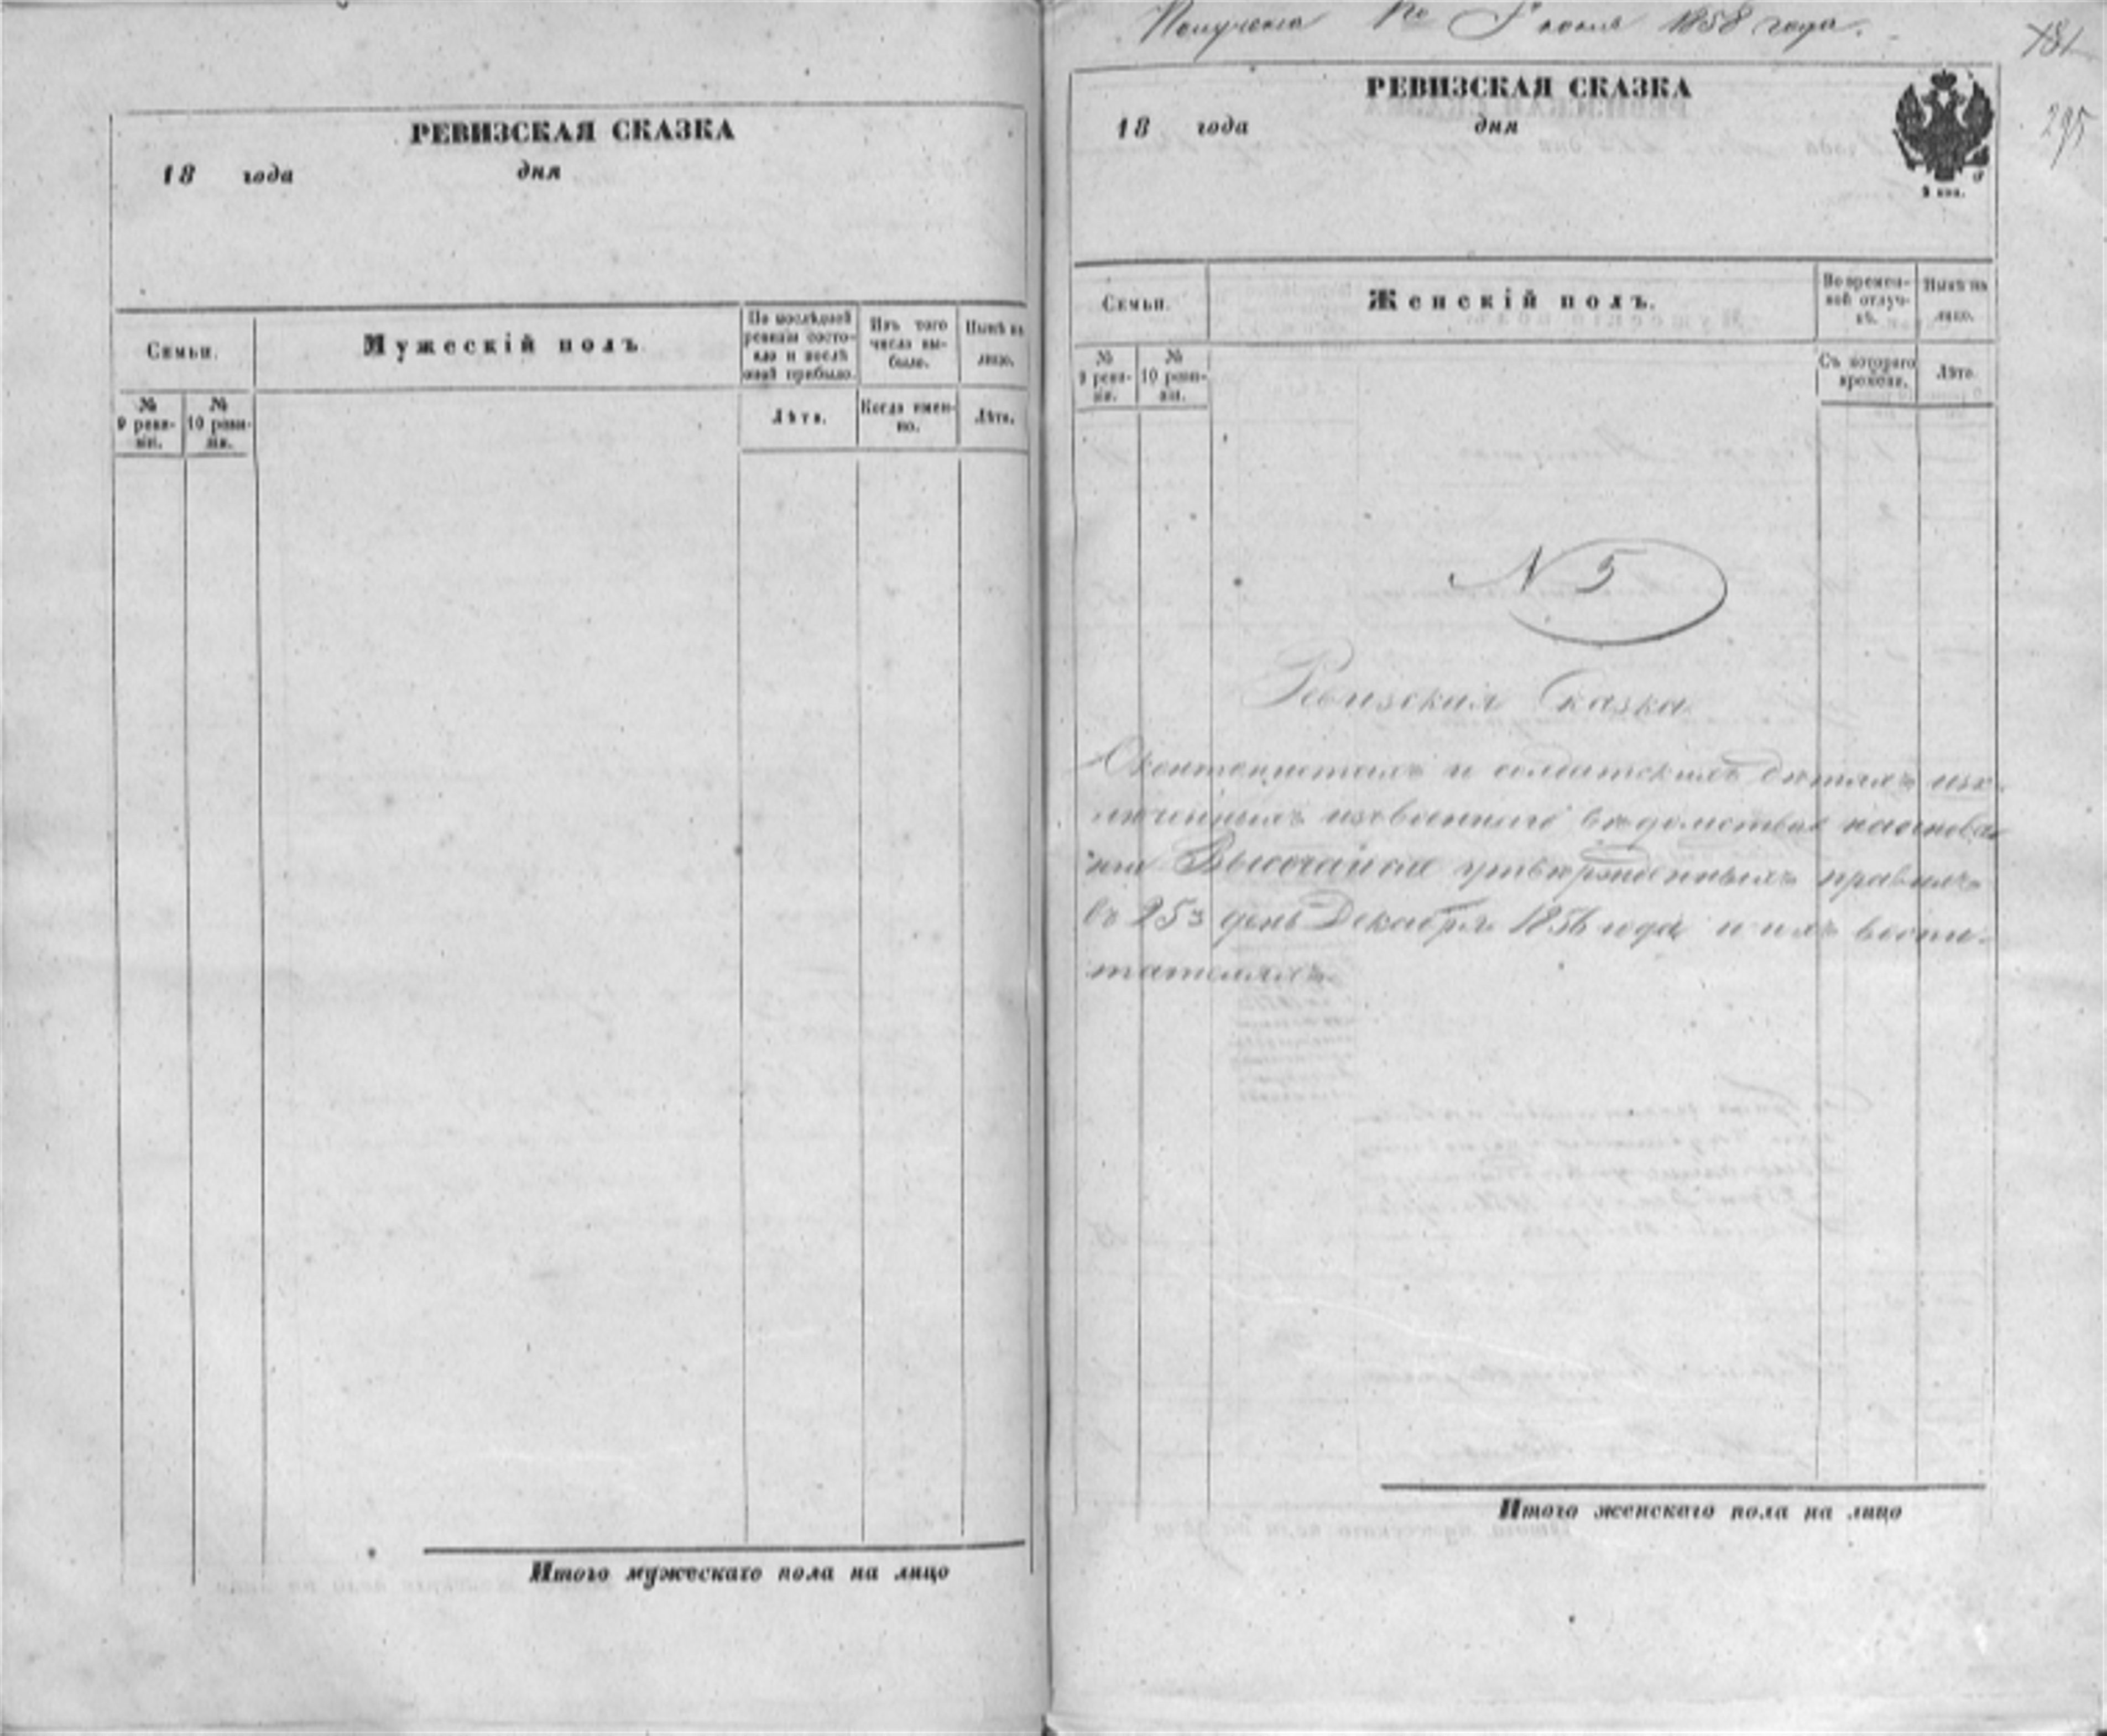 РЕВИЗСКАЯ СКАЗКА
18 года дня
Семьи.
Мужескій полъ
По послѣдней ревизіи состояло и послѣ оной прибыло.
Изъ того числа выбыло.
Нынѣ на лицо.
№ 9 ревизіи.
№ 10 ревизіи.
Лѣта.
Когда именно.
Лѣта.
Итого мужескаго пола на лицо
Получена іюня 1858 года.
181
295
РЕВИЗСКАЯ СКАЗКА
18 года дня
Семьи.
Женскій полъ.
Во временной отлучкѣ.
Нынѣ на лицо.
№ 9 ревизіи.
№ 10 ревизіи.
Съ котораго времени.
Лѣта.
N 5
Ревизская Сказка
О кантонистахъ и солдатскихъ дѣтяхъ иск-
люченныхъ изъ военнаго вѣдомства на основа
ніи Высочайше утвержденныхъ правилъ
въ 25й день Декабря 1856 года и ихъ воспи-
Итого женскаго пола на лицо